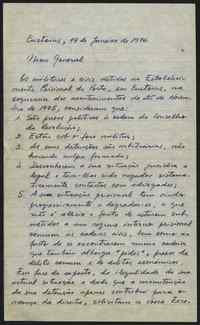 Custoias, 19 de Janeiro de 1976
Meu General
Os militares e civis detidos no Estabeleci-
mento Prisional do Porto, em Custoias, na
sequencia dos acontecimentos do 25 de Novem-
bro de 1975, consideram que:
1. São presos politicos à ordem do Conselho
da Revolução;
2. Estão sob o foro militar;
3. As suas detenções são arbitrárias, não
havendo culpa formada;
4. Desconhecem a sua situação juridica e
legal e tem-lhes sido negados sistema-
ticamente contactos com advogados;
5. A sua situação prisional tem vindo
progressivamente a degradar-se, o que
os é ao ponto de estarem sub-
metidos a um regime interno prisional
comum às cadeias civis, bem como ao
facto de se encontrarem numa cadeia
que tambem alberga "pides", presos de
delito comum e de delitos económicos.
Em face do exposto, da ilegalidade da sua
actual situação e dado que a manutenção
da sua detenção parece contribuir para o
avanço da direita, solicitam a Vossa Exce.